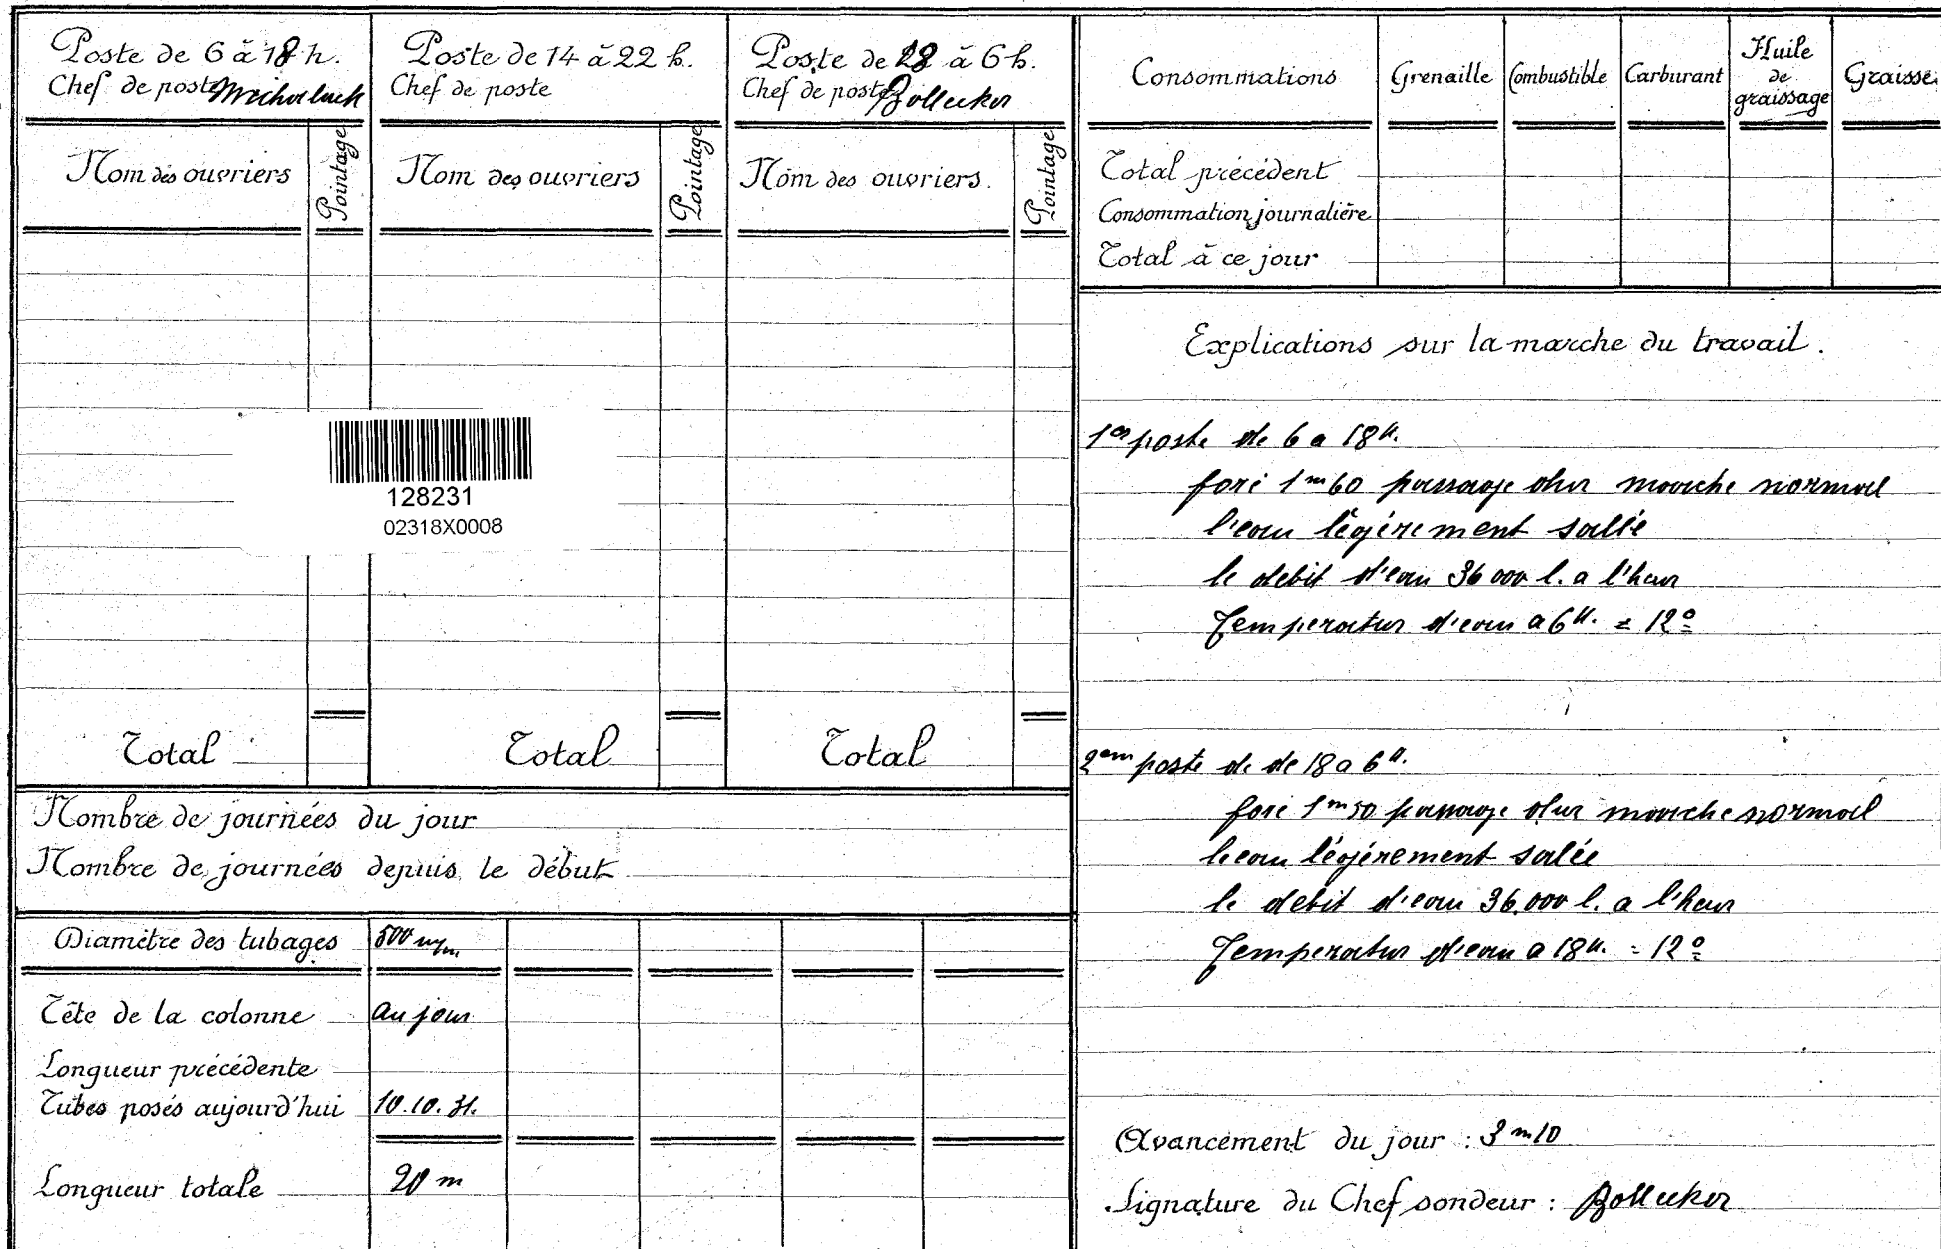 Poste de 6 à 18 h.
Chef de poste
Nom des ouvriers
Pointage
Total
Poste de 14 à 22 h.
Chef de poste
Nom des ouvriers
Pointage
Total
Poste de 18 à 6 h.
Chef de poste Bollecker
Nom des ouvriers.
Pointage
Total
128231
02318X0008
Nombre de journées du jour
Nombre de journées depuis le début
Diamètre des tubages 500 m/m
Tête de la colonne au jour
Longueur précédente
Tubes posés aujourd'hui 10.10.31.
Longueur totale 20 m
Consommations Grenaille Combustible Carburant Huile de graissage Graisse
Total précédent
Consommation journalière
Total à ce jour
Explications sur la marche du travail.
1er poste de 6 a 18 h.
foré 1m60 passage dur marche normal
l'eau légérement sallée
le debit d'eau 36 000 l. a l'heur
Temperatur d'eau a 6 h. = 12°
2em poste de de 18 a 6 h.
foré 1m50 passage dur marche normal
l'eau légérement salée
le debit d'eau 36.000 l. a l'heur
Temperatur d'eau a 18 h. = 12°
Avancement du jour : 3m10
Signature du Chef sondeur : Bollecker